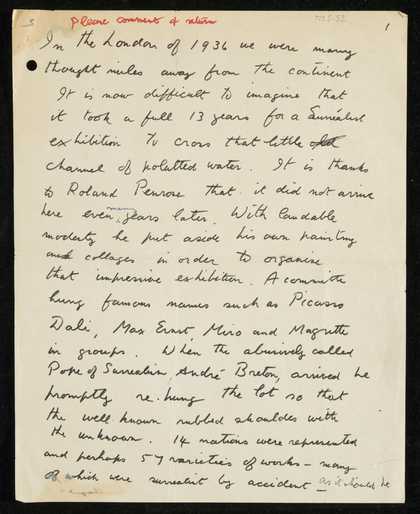 3 please comment & return 1
In the London of 1936 we were many
thought miles away from the continent
It is now difficult to imagine that
it took a full 13 years for a Surrealist
exhibition to cross that little
channel of polutted water. It is thanks
to Roland Penrose that it did not arrive
here even many years later. With laudable
modesty he put aside his own painting
and collages in order to organise
that impressive exhibition. A committe
hung famous names such as Picasso
Dali, Max Ernst, Miro and Magritte
in groups. When the abusively called
Pope of Surrealism, André Breton, arrived he
promptly re-hung the lot so that
the well known rubbed shoulders with
the unknown. 14 nations were represented
and perhaps 57 varieties of works – many
of which were surrealist by accident – as it should be